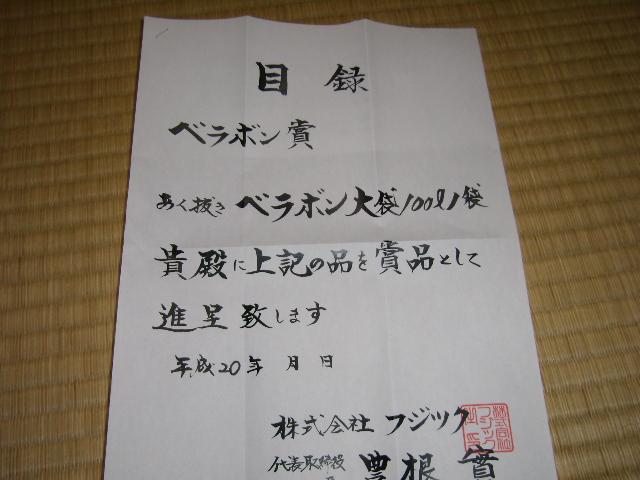 目録
ベラボン賞
あく抜き ベラボン大袋100l1袋
貴殿に上記の品を賞品として
進呈致します
平成20年 月 日
株式会社 フジック
代表取締役 豊根 實